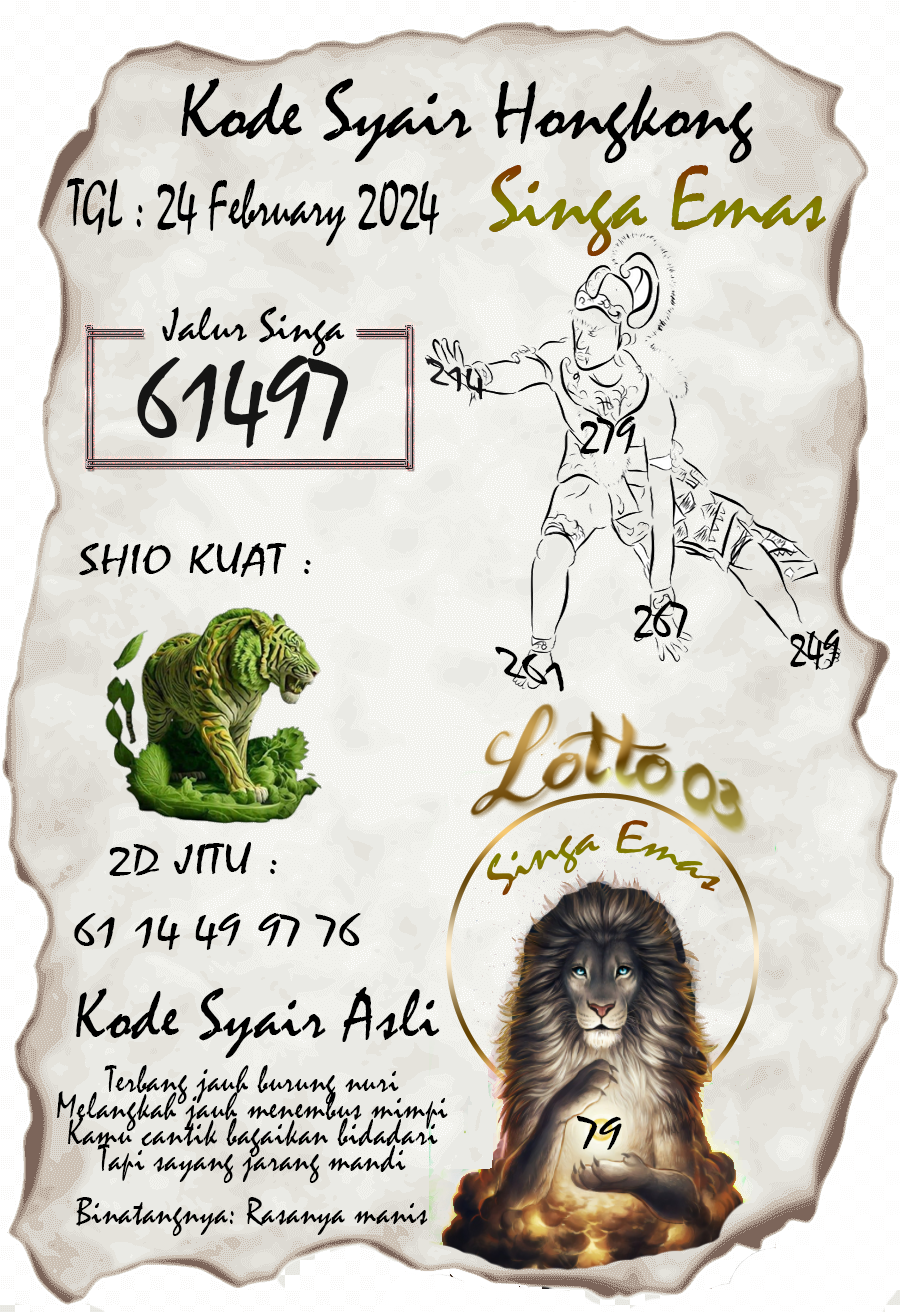 Kode Syair Hongkong
TGL : 24 February 2024
Singa Emas
Jalur Singa
61497
214
279
267
249
261
SHIO KUAT :
Lotto 03
Singa Emas
2D JITU :
61 14 49 97 76
Kode Syair Asli
Terbang jauh burung nuri
Melangkah jauh menembus mimpi
Kamu cantik bagaikan bidadari
Tapi sayang jarang mandi
79
Binatangnya: Rasanya manis